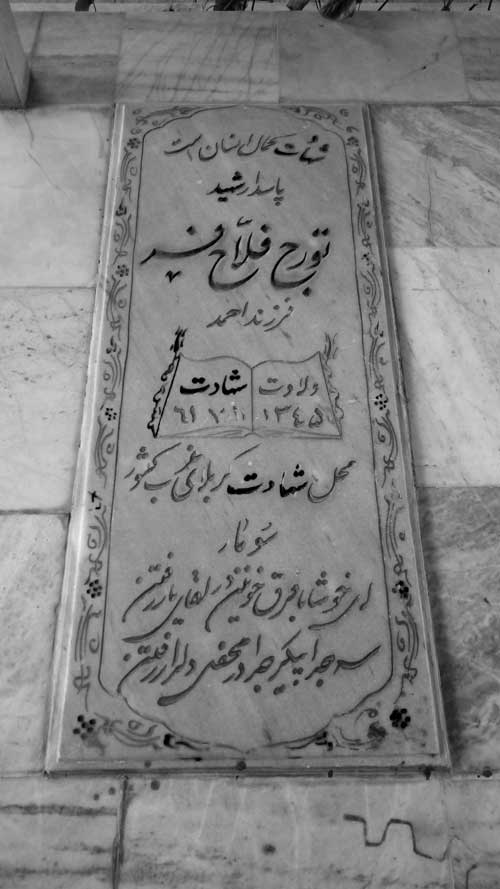 شهادت کمال انسان است
پاسدار رشید
تورج فلاح فر
فرزند احمد
ولادت شهادت
۱۳۴۵
محل شهادت کربلای غرب کشور
سومار
ای خوشا با فرق خونین در لقای یار رفتن
سر جدا پیکر جدا در محفل دلدار رفتن